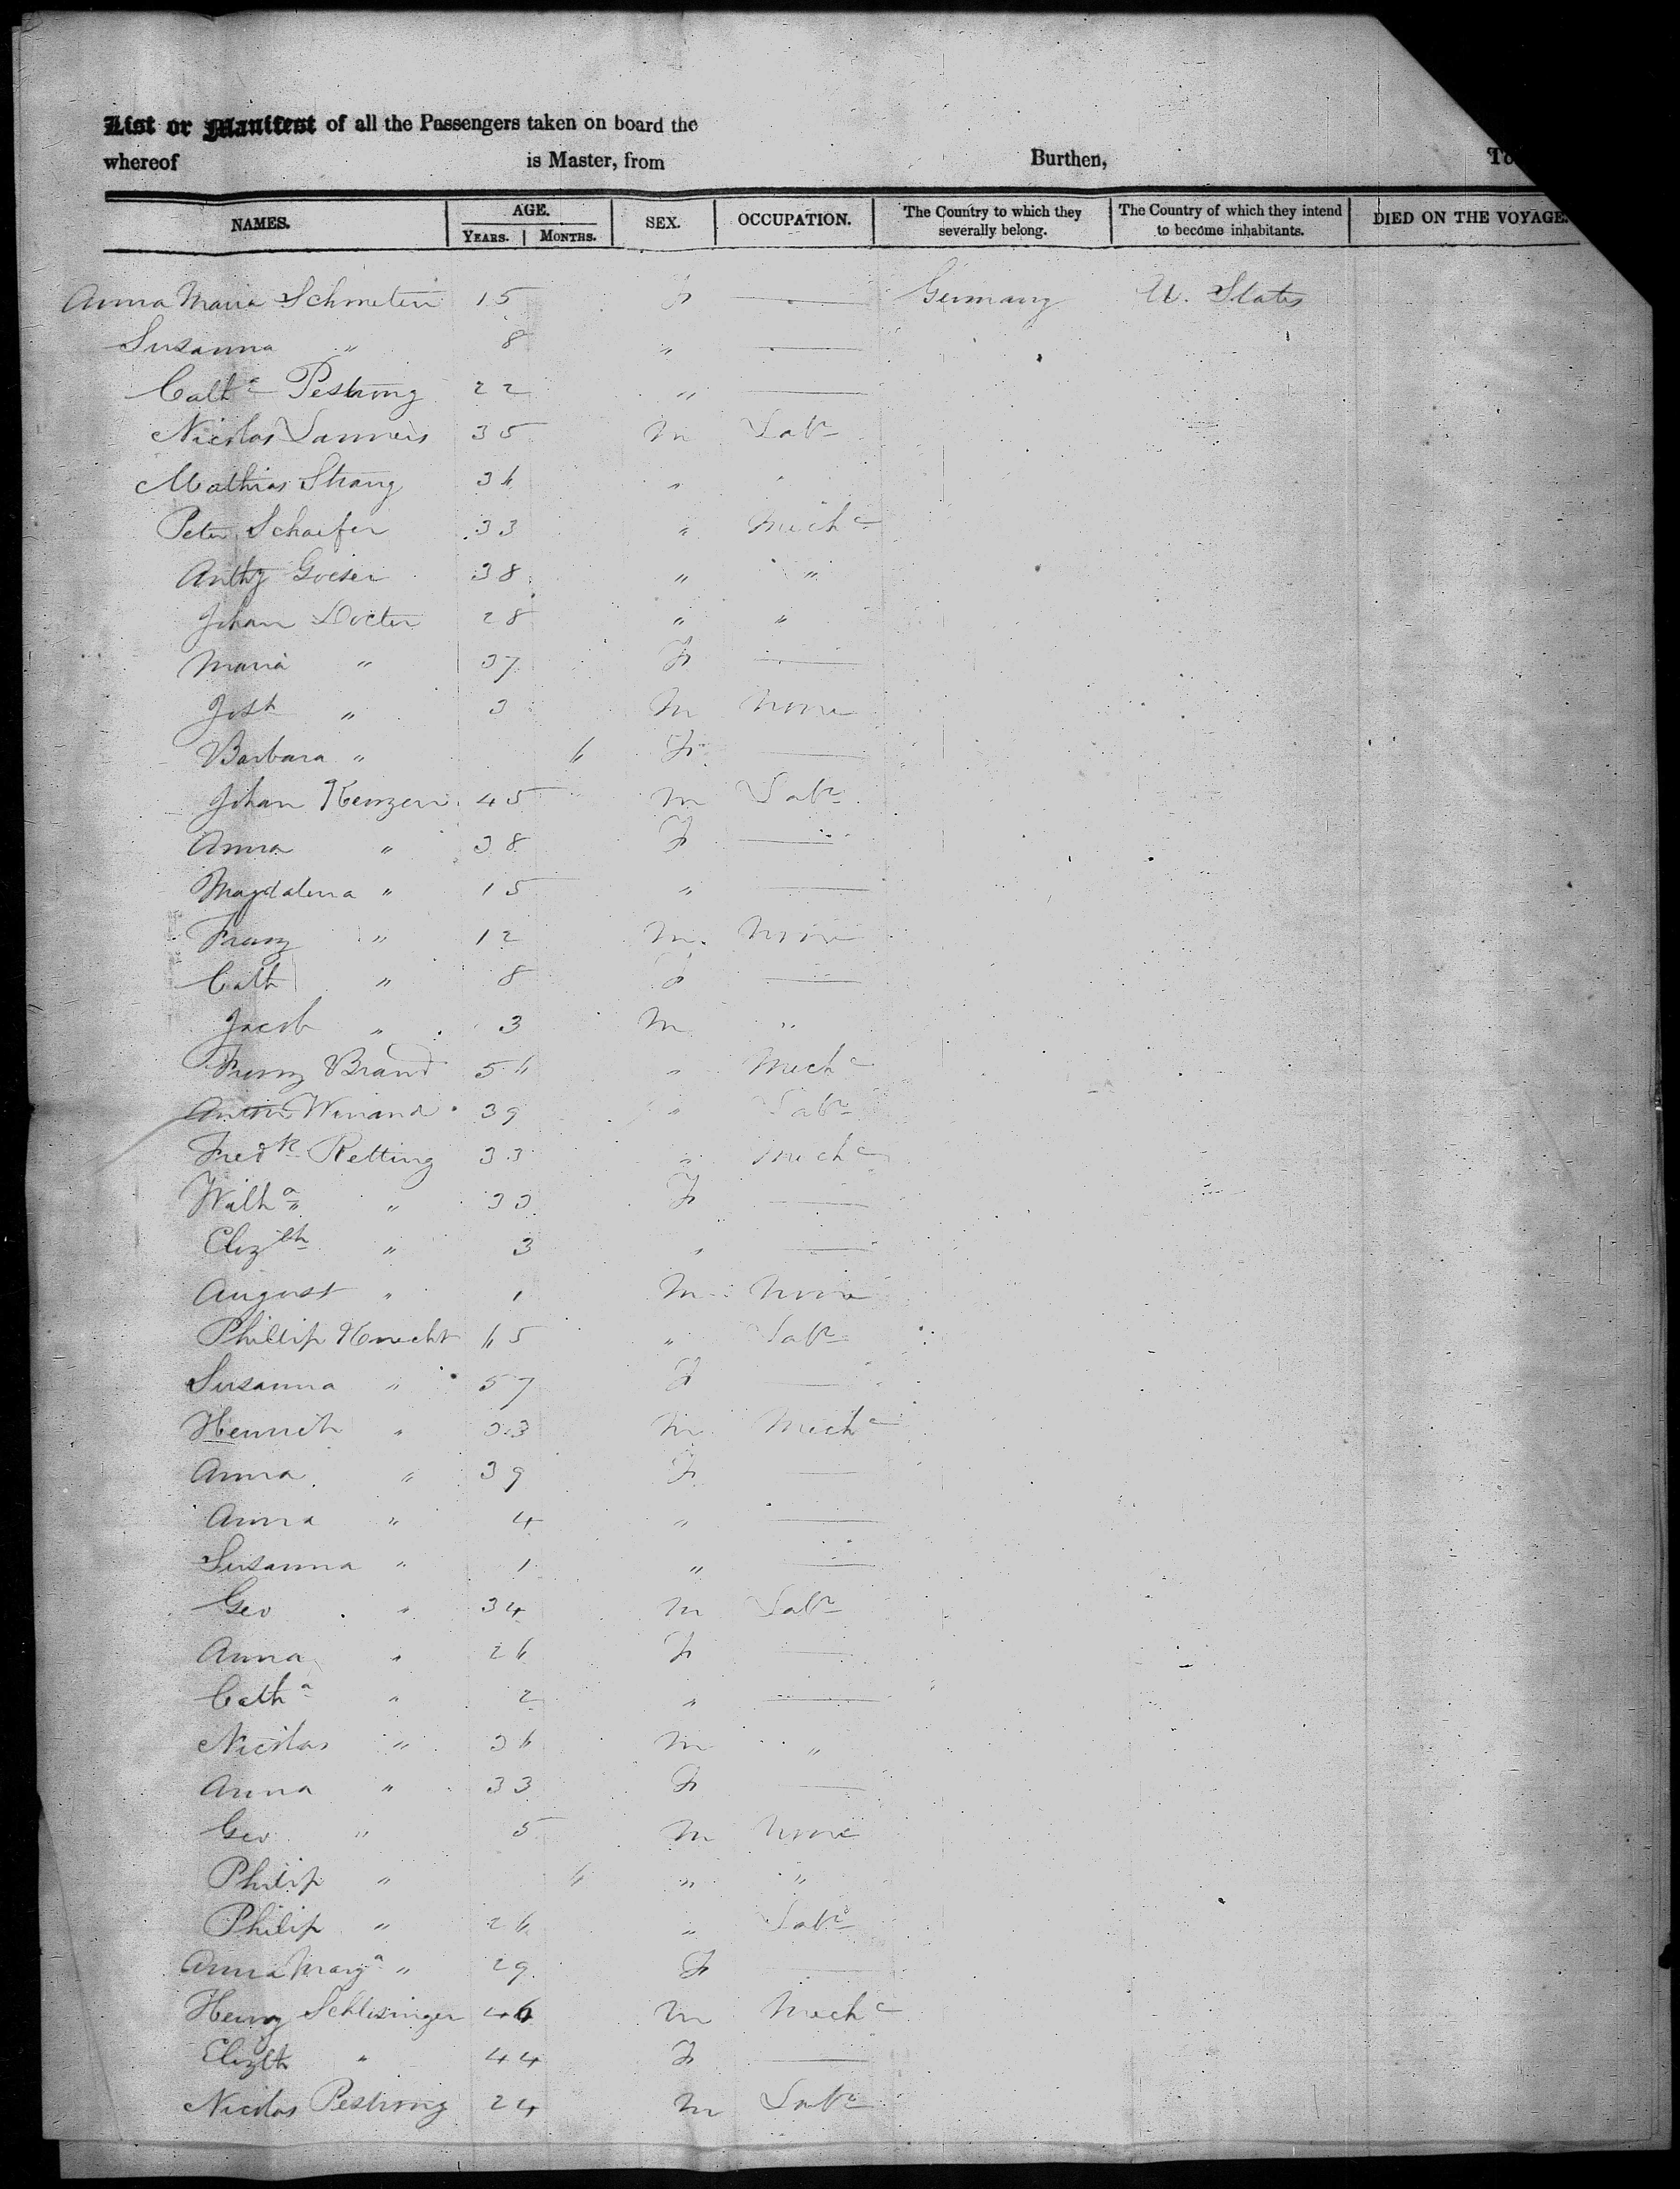 List or Manifest of all the Passengers taken on board the
whereof is Master, from Burthen, To
NAMES. AGE. YEARS. MONTHS. SEX. OCCUPATION. The Country to which they severally belong. The Country of which they intend to become inhabitants. DIED ON THE VOYAGE.
Anna Maria 15 F — Germany U. States
Susanna " 8 " —
Catha 22 " —
Nicolas 35 M Labr
Mathias Strang 36 "
Peter Schaefer 33 " Mechc
Anthy Goeser 38 " "
Johan Docter 28 " "
Maria " 37 F —
Josh " 3 M None
Barbara " 6 F —
Johan 45 M Labr
Anna " 38 F —
Magdalena " 15 " —
Franz " 12 M None
Cath " 8 F —
Jacob " 3 M "
Franz Brand 56 " Mechc
Anton Winand 39 " Labr
Fredk Retting 33 " Mechc
Wilha " 33 F —
Elizth " 3 " —
August " 1 M None
Phillip Knecht 65 " Labr
Susanna " 57 F —
Henrich " 33 M Mechc
Anna " 39 F —
Anna " 4 " —
Susanna " 1 " —
Geo " 34 M Labr
Anna " 26 F —
Catha " 2 " —
Nicolas " 36 M "
Anna " 33 F —
Geo " 5 M None
Philip " 6 " "
Philip " 26 " Labr
Anna Marga " 29 F —
Henry Schlesinger 46 M Mechc
Elizth " 44 F —
Nicolas 24 M Labr